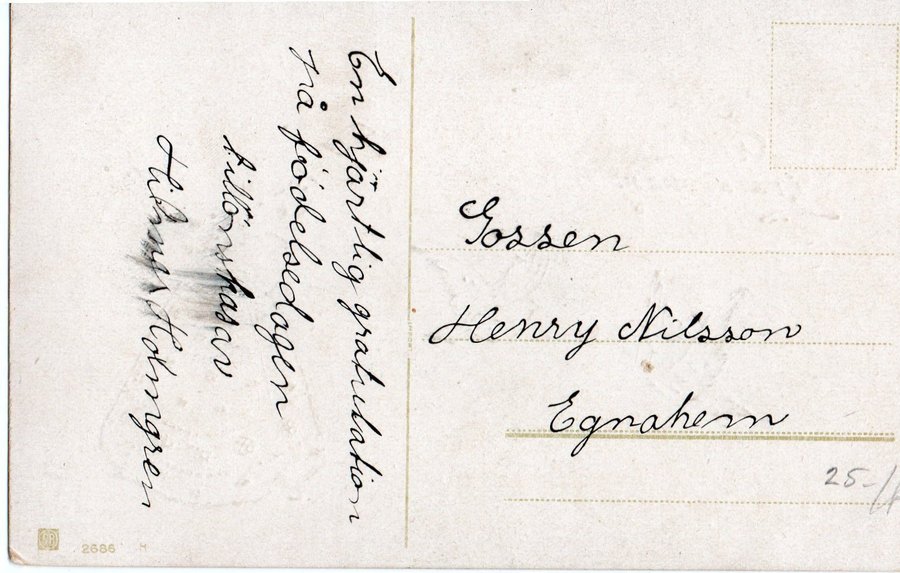 En hjärtlig gratulation
på födelsedagen
tillönskasav
Hilmer Holmgren
Gossen
Henry Nilsson
Egnahem
25-
2686